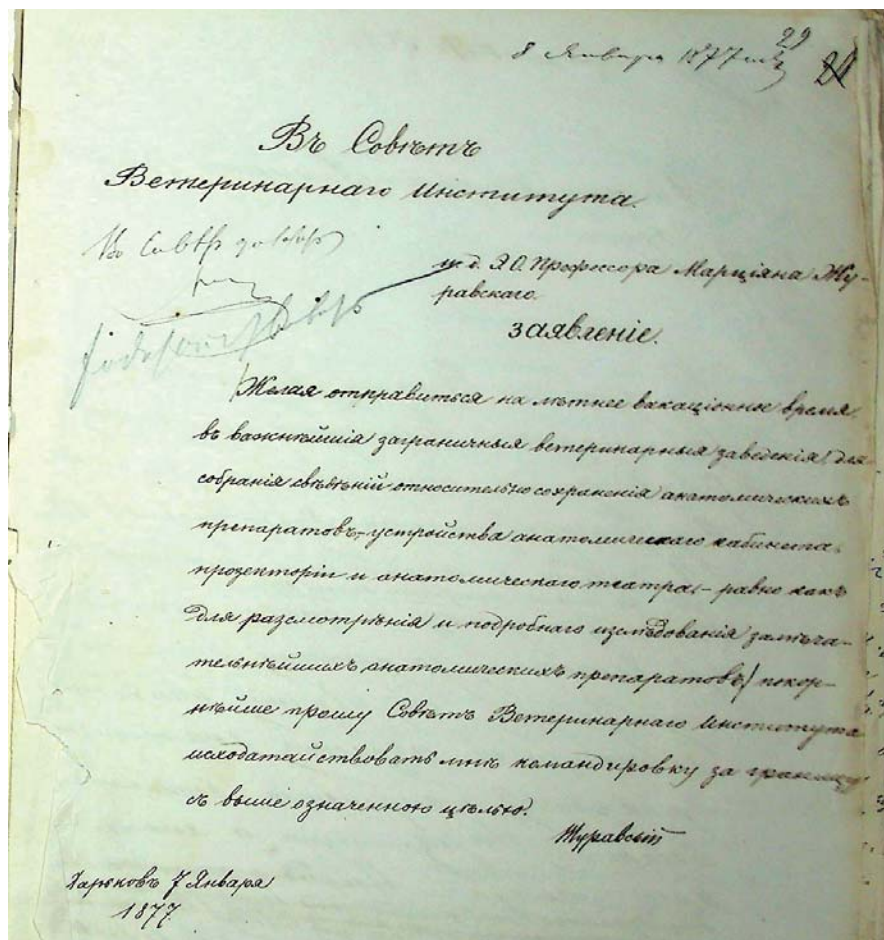 29
8 Января 1877 года
Въ Совѣтъ
Ветеринарнаго Института.
Въ Совѣтъ
и. д. Э. О. Профессора Марціяна Жу-
равскаго.
заявленіе.
Желая отправиться на лѣтнее вакаціонное время
въ важнѣйшія заграничныя ветеринарныя заведенія, для
собранія свѣдѣній относительно сохраненія анатомическихъ
препаратовъ, устройства анатомическаго кабинета,
прозекторіи и анатомическаго театра, – равно какъ
для разсмотрѣнія и подробнаго изслѣдованія замѣча-
тельнѣйшихъ анатомическихъ препаратовъ, покор-
нѣйше прошу Совѣтъ Ветеринарнаго Института
исходатайствовать мнѣ командировку за границу
съ выше означенною цѣлью.
Журавскій
Харьковъ 7 Января
1877.